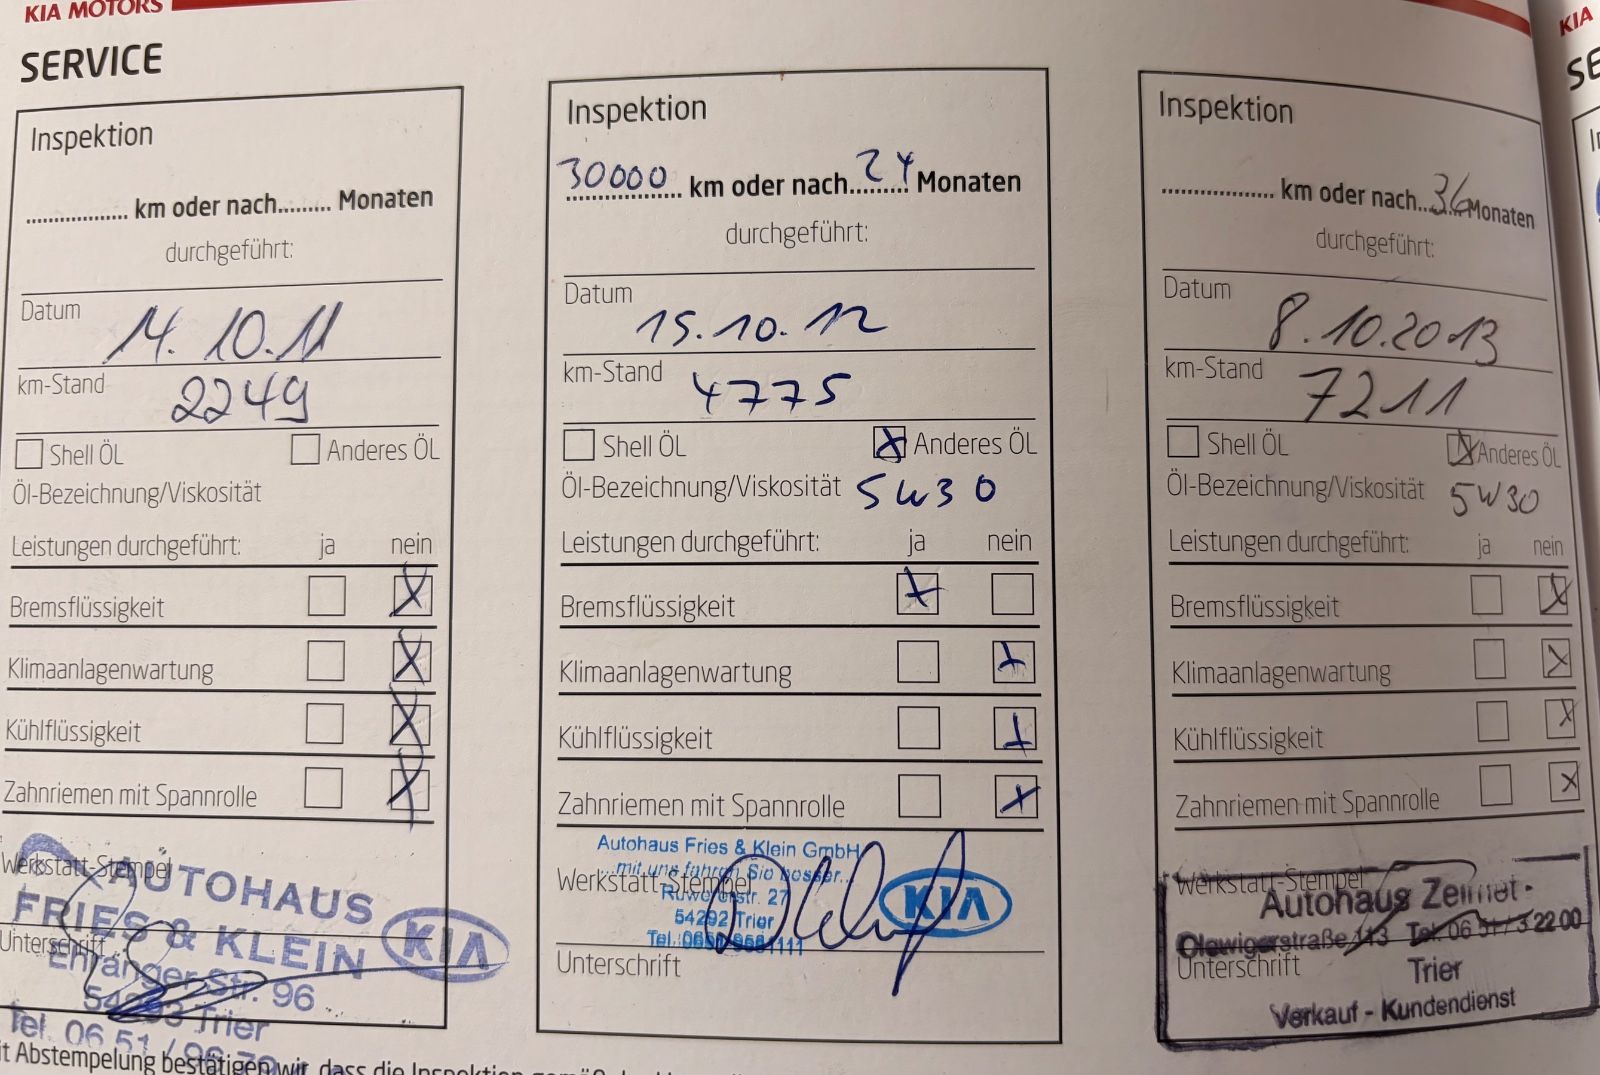 KIA MOTORS
SERVICE
Inspektion
.................. km oder nach......... Monaten
durchgeführt:
Datum
14.10.11
km-Stand 2249
Shell ÖL Anderes ÖL
Öl-Bezeichnung/Viskosität
Leistungen durchgeführt: ja nein
Bremsflüssigkeit
Klimaanlagenwartung
Kühlflüssigkeit
Zahnriemen mit Spannrolle
Werkstatt-Stempel
AUTOHAUS
FRIES & KLEIN KIA
Unterschrift
Str. 96
Trier
Tel. 06 51 /
Inspektion
30000 km oder nach 24 Monaten
durchgeführt:
Datum
15.10.12
km-Stand 4775
Shell ÖL X Anderes ÖL
Öl-Bezeichnung/Viskosität 5W30
Leistungen durchgeführt: ja nein
Bremsflüssigkeit X
Klimaanlagenwartung X
Kühlflüssigkeit X
Zahnriemen mit Spannrolle X
Autohaus Fries & Klein GmbH
...mit uns fahren Sie besser...
Werkstatt-Stempel KIA
27
54292 Trier
Tel.
Unterschrift
Inspektion
.................. km oder nach 36 Monaten
durchgeführt:
Datum
8.10.2013
km-Stand 7211
Shell ÖL X Anderes ÖL
Öl-Bezeichnung/Viskosität 5W30
Leistungen durchgeführt: ja nein
Bremsflüssigkeit X
Klimaanlagenwartung X
Kühlflüssigkeit X
Zahnriemen mit Spannrolle X
Werkstatt-Stempel
Autohaus
Olewigerstraße 113 Tel. 06 51 / 3 22 00
Unterschrift
Trier
Verkauf - Kundendienst
KIA
Abstempelung bestätigen wir, dass die Inspektion